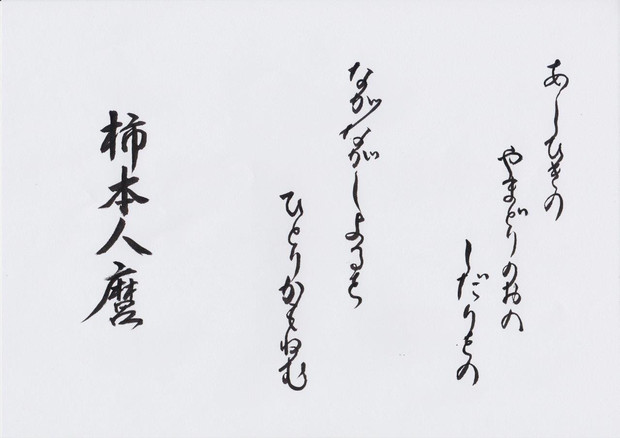 あしひきの
やまどりのおの
しだりをの
ながながしよるを
ひとりかもねむ
柿本人麿